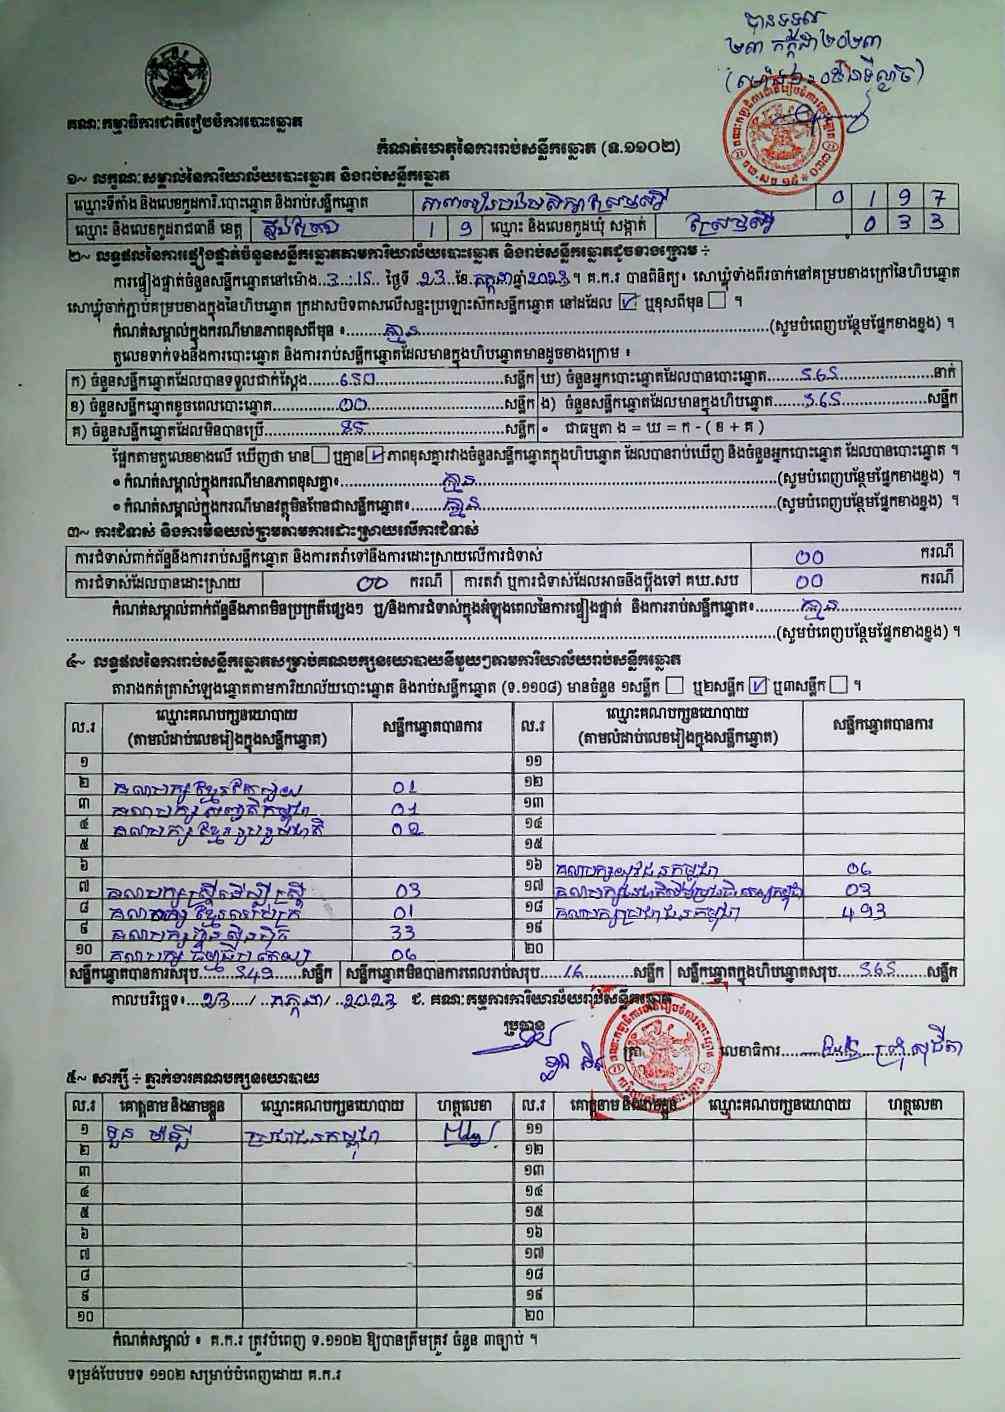 បានទទួល
២៣ កក្កដា ២០២៣
គណៈកម្មាធិការជាតិរៀបចំការបោះឆ្នោត
កំណត់ហេតុនៃការរាប់សន្លឹកឆ្នោត (ទ.១១០២)
១~ លក្ខណៈសម្គាល់នៃការិយាល័យបោះឆ្នោត និងរាប់សន្លឹកឆ្នោត
ឈ្មោះទីតាំង និងលេខកូដការិ.បោះឆ្នោត និងរាប់សន្លឹកឆ្នោត 0 1 9 7
ឈ្មោះ និងលេខកូដរាជធានី ខេត្ត ស្ទឹងត្រែង 1 9 ឈ្មោះ និងលេខកូដឃុំ សង្កាត់ 0 3 3
២~ លទ្ធផលនៃការផ្ទៀងផ្ទាត់ចំនួនសន្លឹកឆ្នោតតាមការិយាល័យបោះឆ្នោត និងរាប់សន្លឹកឆ្នោតដូចខាងក្រោម ÷
ការផ្ទៀងផ្ទាត់ចំនួនសន្លឹកឆ្នោតនៅម៉ោង 3:15 ថ្ងៃទី 23 ខែ កក្កដា ឆ្នាំ 2023 ។ គ.ក.រ បានពិនិត្យ៖ សោឃ្លុំទាំងពីរចាក់នៅគម្របខាងក្រៅនៃហិបឆ្នោត
សោឃ្លុំចាក់ភ្ជាប់គម្របខាងក្នុងនៃហិបឆ្នោត ក្រដាសបិទពាសលើសន្ទះប្រឡោះស៊កសន្លឹកឆ្នោត នៅដដែល ☑ ឬខុសពីមុន ☐ ។
កំណត់សម្គាល់ក្នុងករណីមានភាពខុសពីមុន ៖ គ្មាន (សូមបំពេញបន្ថែមផ្នែកខាងខ្នង) ។
តួលេខទាក់ទងនឹងការបោះឆ្នោត និងការរាប់សន្លឹកឆ្នោតដែលមានក្នុងហិបឆ្នោតមានដូចខាងក្រោម ៖
ក) ចំនួនសន្លឹកឆ្នោតដែលបានទទួលជាក់ស្តែង 650 សន្លឹក ឃ) ចំនួនអ្នកបោះឆ្នោតដែលបានបោះឆ្នោត 565 នាក់
ខ) ចំនួនសន្លឹកឆ្នោតខូចពេលបោះឆ្នោត 00 សន្លឹក ង) ចំនួនសន្លឹកឆ្នោតដែលមានក្នុងហិបឆ្នោត 565 សន្លឹក
គ) ចំនួនសន្លឹកឆ្នោតដែលមិនបានប្រើ 85 សន្លឹក • ជាធម្មតា ង = ឃ = ក - ( ខ + គ )
ផ្អែកតាមតួលេខខាងលើ ឃើញថា មាន ☐ ឬគ្មាន ☑ ភាពខុសគ្នារវាងចំនួនសន្លឹកឆ្នោតក្នុងហិបឆ្នោត ដែលបានរាប់ឃើញ និងចំនួនអ្នកបោះឆ្នោត ដែលបានបោះឆ្នោត ។
• កំណត់សម្គាល់ក្នុងករណីមានភាពខុសគ្នា៖ គ្មាន (សូមបំពេញបន្ថែមផ្នែកខាងខ្នង) ។
• កំណត់សម្គាល់ក្នុងករណីមានវត្ថុមិនមែនជាសន្លឹកឆ្នោត៖ គ្មាន (សូមបំពេញបន្ថែមផ្នែកខាងខ្នង) ។
៣~ ការជំទាស់ និងការមិនយល់ព្រមតាមការដោះស្រាយលើការជំទាស់
ការជំទាស់ពាក់ព័ន្ធនឹងការរាប់សន្លឹកឆ្នោត និងការតវ៉ាទៅនឹងការដោះស្រាយលើការជំទាស់ 00 ករណី
ការជំទាស់ដែលបានដោះស្រាយ 00 ករណី ការតវ៉ា ឬការជំទាស់ដែលអាចនឹងប្តឹងទៅ គឃ.សប 00 ករណី
កំណត់សម្គាល់ពាក់ព័ន្ធនឹងភាពមិនប្រក្រតីផ្សេងៗ ឬ/និងការជំទាស់ក្នុងអំឡុងពេលនៃការផ្ទៀងផ្ទាត់ និងការរាប់សន្លឹកឆ្នោត៖ គ្មាន
(សូមបំពេញបន្ថែមផ្នែកខាងខ្នង) ។
៤~ លទ្ធផលនៃការរាប់សន្លឹកឆ្នោតសម្រាប់គណបក្សនយោបាយនីមួយៗតាមការិយាល័យរាប់សន្លឹកឆ្នោត
តារាងកត់ត្រាសំឡេងឆ្នោតតាមការិយាល័យបោះឆ្នោត និងរាប់សន្លឹកឆ្នោត (ទ.១១០៨) មានចំនួន ១សន្លឹក ☐ ឬ២សន្លឹក ☑ ឬ៣សន្លឹក ☐ ។
ល.រ ឈ្មោះគណបក្សនយោបាយ សន្លឹកឆ្នោតបានការ ល.រ ឈ្មោះគណបក្សនយោបាយ សន្លឹកឆ្នោតបានការ
(តាមលំដាប់លេខរៀងក្នុងសន្លឹកឆ្នោត) (តាមលំដាប់លេខរៀងក្នុងសន្លឹកឆ្នោត)
១ ១១
២ គណបក្សខ្មែរតែមួយ 01 ១២
៣ គណបក្សសញ្ជាតិកម្ពុជា 01 ១៣
៤ គណបក្សខ្មែររួបរួមជាតិ 02 ១៤
៥ ១៥
៦ ១៦ គណបក្សយុវជនកម្ពុជា 06
៧ គណបក្សស្ត្រីដើម្បីស្ត្រី 03 ១៧ 03
៨ គណបក្សខ្មែរអភិរក្ស 01 ១៨ គណបក្សប្រជាជនកម្ពុជា 493
៩ គណបក្សហ្វ៊ុនស៊ិនប៉ិច 33 ១៩
១០ គណបក្សធម្មាធិបតេយ្យ 06 ២០
សន្លឹកឆ្នោតបានការសរុប 549 សន្លឹក សន្លឹកឆ្នោតមិនបានការពេលរាប់សរុប 16 សន្លឹក សន្លឹកឆ្នោតក្នុងហិបឆ្នោតសរុប 565 សន្លឹក
កាលបរិច្ឆេទ៖ 23 / កក្កដា / 2023 ជ. គណៈកម្មការការិយាល័យរាប់សន្លឹកឆ្នោត
ប្រធាន
ត្រា លេខាធិការ
៥~ សាក្សី ÷ ភ្នាក់ងារគណបក្សនយោបាយ
ល.រ គោត្តនាម និងនាមខ្លួន ឈ្មោះគណបក្សនយោបាយ ហត្ថលេខា ល.រ គោត្តនាម និងនាមខ្លួន ឈ្មោះគណបក្សនយោបាយ ហត្ថលេខា
១ ប្រជាជនកម្ពុជា ១១
២ ១២
៣ ១៣
៤ ១៤
៥ ១៥
៦ ១៦
៧ ១៧
៨ ១៨
៩ ១៩
១០ ២០
កំណត់សម្គាល់ ៖ គ.ក.រ ត្រូវបំពេញ ទ.១១០២ ឱ្យបានត្រឹមត្រូវ ចំនួន ៣ច្បាប់ ។
ទម្រង់បែបបទ ១១០២ សម្រាប់បំពេញដោយ គ.ក.រ